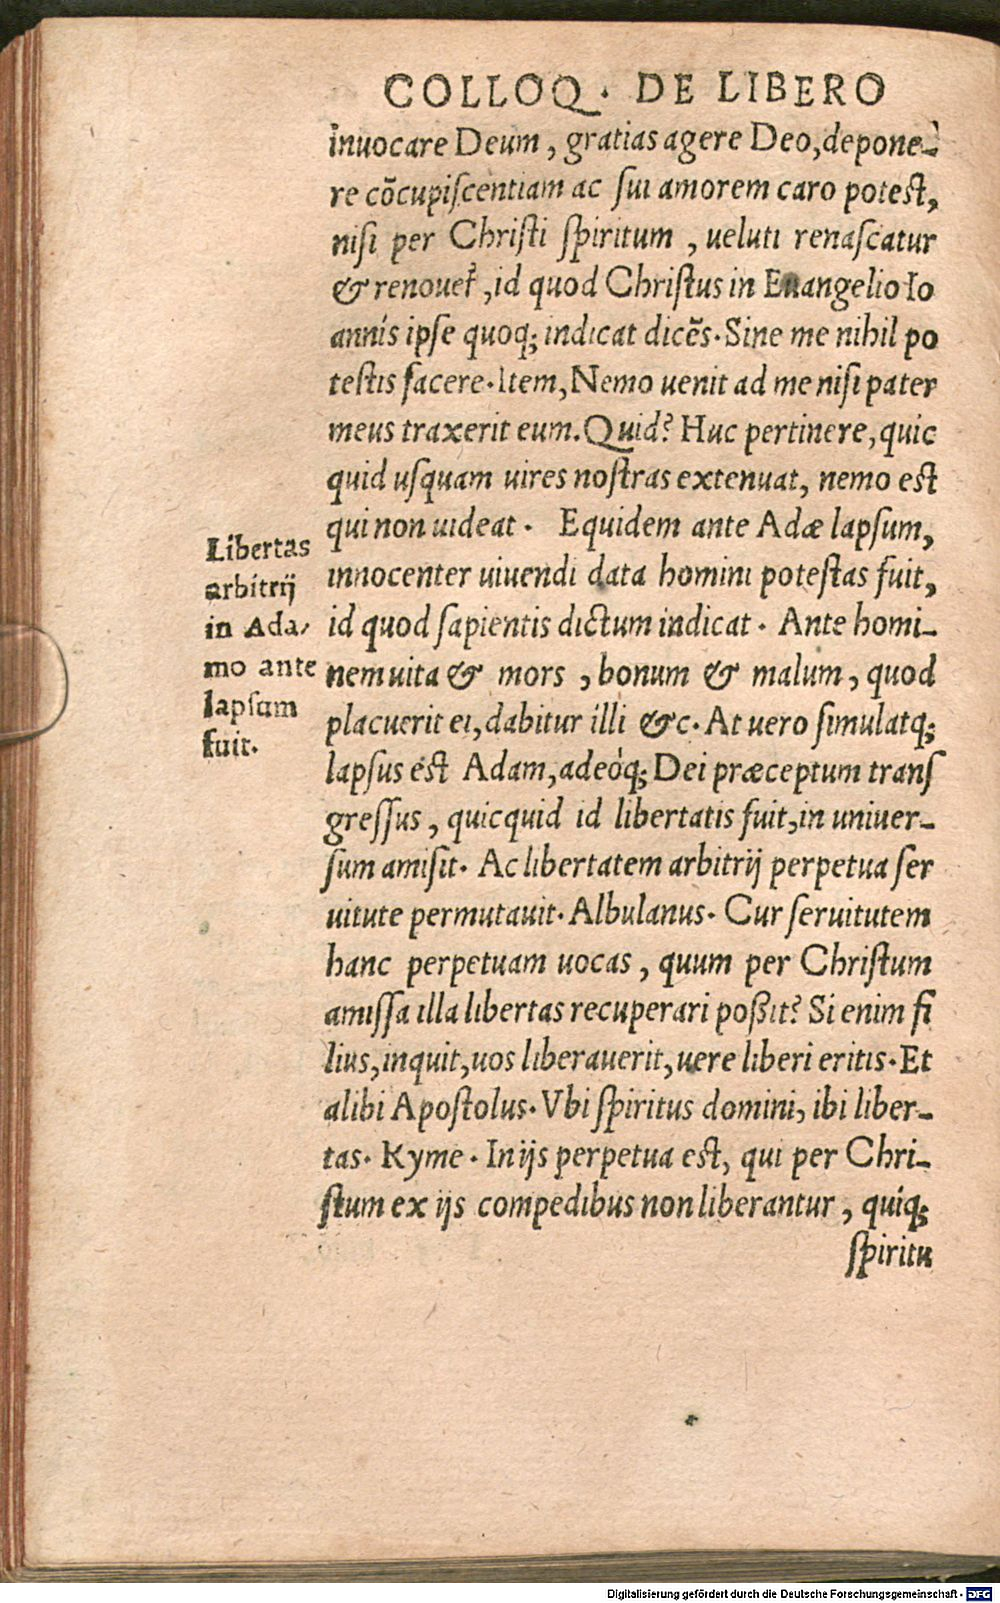 COLLOQ. DE LIBERO
inuocare Deum, gratias agere Deo, depone-
re cõcupiscentiam ac sui amorem caro potest,
nisi per Christi spiritum, ueluti renascatur
& renouet᷑, id quod Christus in Euangelio Io
annis ipse quoq; indicat dicẽs. Sine me nihil po
testis facere. Item, Nemo uenit ad me nisi pater
meus traxerit eum. Quid? Huc pertinere, quic
quid usquam uires nostras extenuat, nemo est
qui non uideat. Equidem ante Adæ lapsum,
innocenter uiuendi data homini potestas fuit,
id quod sapientis dictum indicat. Ante homi-
nem uita & mors, bonum & malum, quod
placuerit ei, dabitur illi &c. At uero simulatq;
lapsus est Adam, adeòq; Dei præceptum trans
gressus, quicquid id libertatis fuit, in uniuer-
sum amisit. Ac libertatem arbitrij perpetua ser
uitute permutauit. Albulanus. Cur seruitutem
hanc perpetuam uocas, quum per Christum
amissa illa libertas recuperari poßit? Si enim fi
lius, inquit, uos liberauerit, uere liberi eritis. Et
alibi Apostolus. Vbi spiritus domini, ibi liber-
tas. Kyme. In ijs perpetua est, qui per Chri-
stum ex ijs compedibus non liberantur, quiq;
spiritu
Libertas
arbitrij
in Ada/
mo ante
lapsum
fuit.
Digitalisierung gefördert durch die Deutsche Forschungsgemeinschaft - DFG